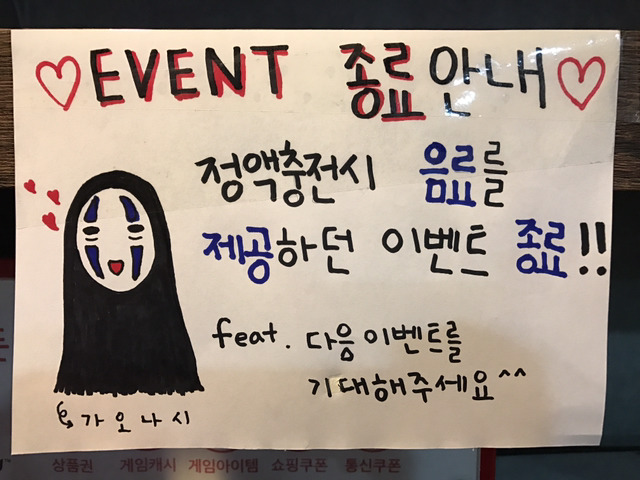 ♡EVENT 종료안내♡
정액충전시 음료를
제공하던 이벤트 종료!!
feat. 다음이벤트를
기대해주세요^^
가오나시
상품권 게임캐시 게임아이템 쇼핑쿠폰 통신쿠폰